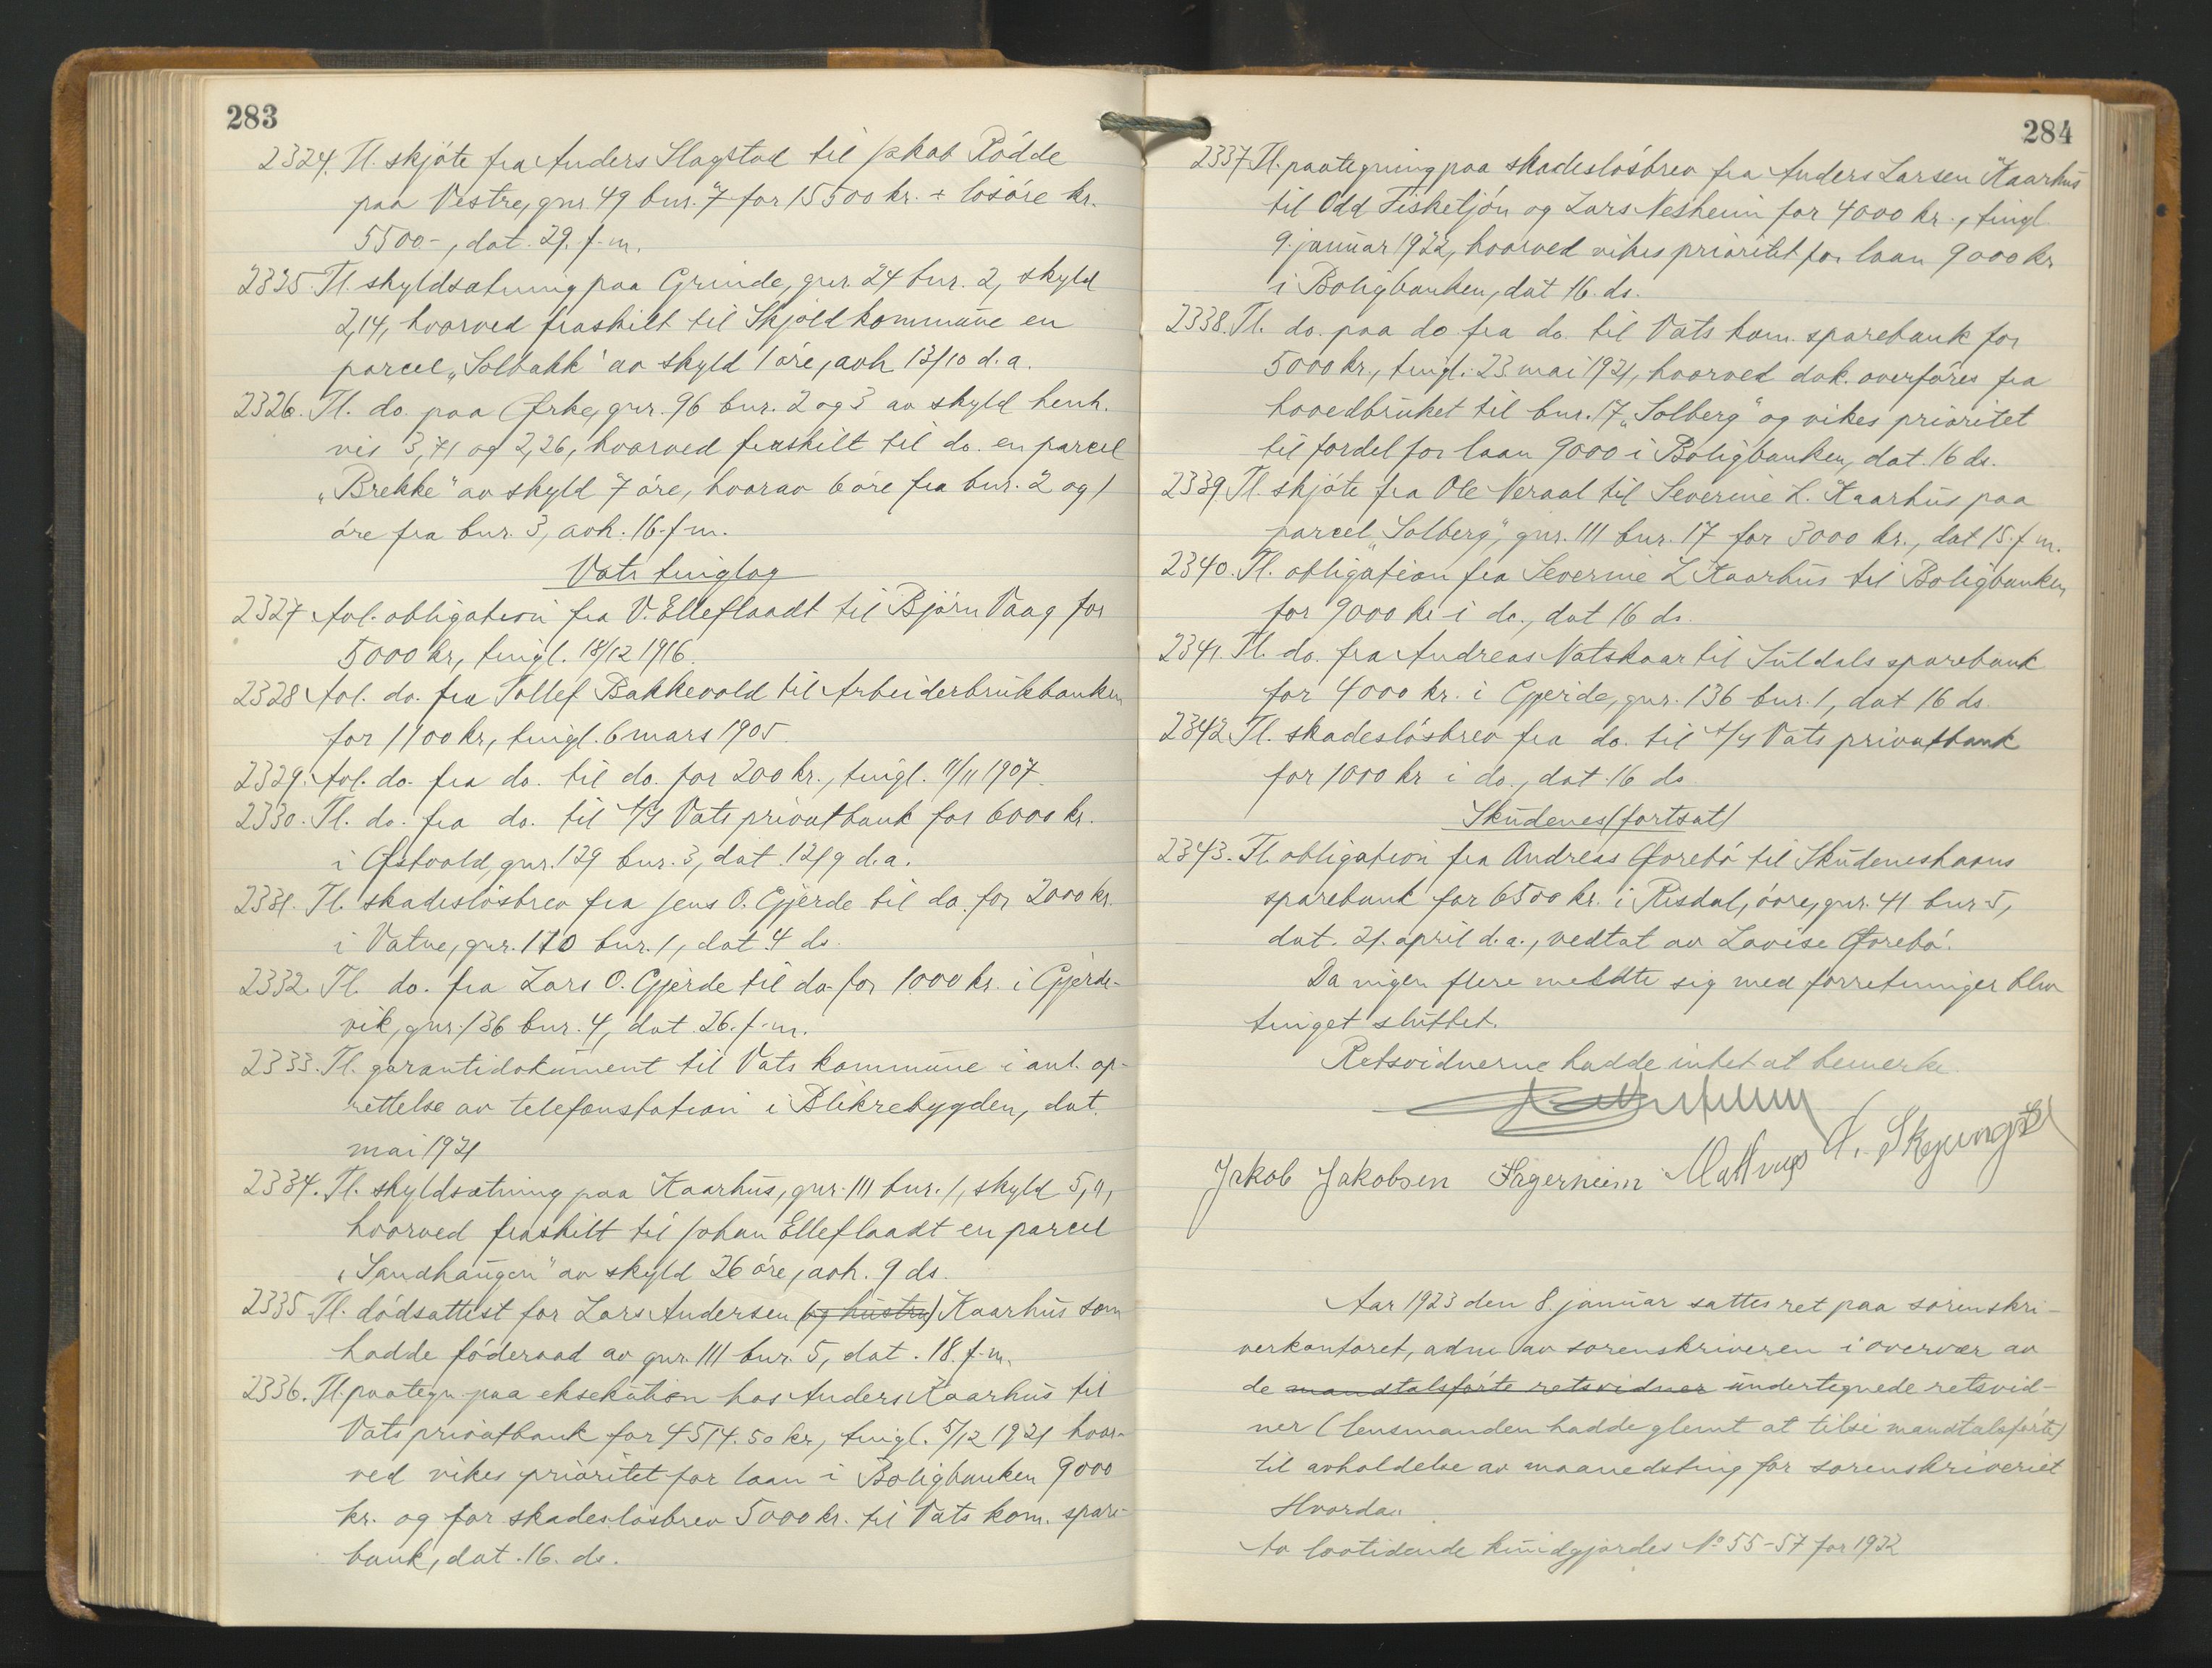 283
2324. Tl. skjøte fra Anders Slogstad til Jakob Rødde
paa Vestre, gnr. 49 bnr. 7 for 15500 kr. + løsøre kr.
5500-, dat. 29. f.m.
2325. Tl. skyldsætning paa Grinde, gnr. 24 bnr. 2, skyld
2,14, hvorved fraskilt til Skjold kommune en
parcel „Solbakk" av skyld 1 øre, avh. 13/10 d.a.
2326. Tl. do. paa Ørke, gnr. 96 bnr. 2 og 3 av skyld henh.
vis 3,71 og 2,26, hvorved fraskilt til do. en parcel
„Brekke" av skyld 7 øre, hvorav 6 øre fra bnr. 2 og 1
øre fra bnr. 3, avh. 16. f.m.
Vats tinglag
2327 Avl. obligation fra V. Elleflaadt til Bjørn Vaag for
5000 kr, tingl. 18/12 1916.
2328 Avl. do. fra Tollef Bakkevold til Arbeiderbrukbanken
for 1100 kr, tingl. 6 mars 1905.
2329. Avl. do. fra do. til do. for 200 kr., tingl. 11/11 1907.
2330. Tl. do. fra do. til A/S Vats privatbank for 6000 kr.
i Østvold, gnr. 139 bnr. 3, dat. 12/9 d.a.
2331. Tl. skadesløsbrev fra Jens O. Gjerde til do. for 2000 kr.
i Vatne, gnr. 110 bnr. 1, dat 4 ds.
2332. Tl. do. fra Lars O. Gjerde til do. for 1000 kr. i Gjerde-
vik, gnr. 136 bnr. 4, dat. 26. f.m.
2333. Tl. garantidokument til Vats kommune i anl. op-
rettelse av telefonstation i Blikrebygden, dat.
mai 1921
2334. Tl. skyldsætning paa Kaarhus, gnr. 111 bnr. 1, skyld 5,11,
hvorved fraskilt til Johan Elleflaadt en parcel
„Sandhaugen" av skyld 26 øre, avh. 9 ds.
2335. Tl. dødsattest for Lars Andersen (og hustru) Kaarhus som
hadde føderaad av gnr. 111 bnr. 5, dat. 18. f.m.
2336. Tl. paategn. paa eksekution hos Anders Kaarhus til
Vats privatbank for 4514.50 kr, tingl. 5/12 1921 hvor-
ved vikes prioritet for laan i Boligbanken 9000
kr. og for skadesløsbrev 5000 kr. til Vats kom. spare-
bank, dat. 16. ds.
284
2337 Tl. paategning paa skadesløsbrev fra Anders Larsen Kaarhus
til Odd Fisketjøn og Lars Nesheim for 4000 kr., tingl.
9. januar 1922, hvorved vikes prioritet for laan 9000 kr
i Boligbanken, dat 16. ds.
2338. Tl. do. paa do fra do. til Vats kom. sparebank for
5000 kr., tingl. 23. mai 1921, hvorved dok. overføres fra
hovedbruket til bnr. 17 „Solberg" og vikes prioritet
til fordel for laan 9000 i Boligbanken, dat. 16 ds.
2339 Tl. skjøte fra Ole Veraal til Severine L. Kaarhus paa
parcel „Solberg", gnr. 111 bnr. 17 for 3000 kr., dat 15. f.m.
2340. Tl. obligation fra Severine L Kaarhus til Boligbanken
for 9000 kr i do., dat 16 ds.
2341. Tl. do. fra Andreas Vatskaar til Suldals sparebank
for 4000 kr. i Gjerde, gnr. 136 bnr. 1, dat 16 ds.
2342 Tl. skadesløsbrev fra do. til A/S Vats privatbank
for 1000 kr i do., dat. 16 ds
Skudenes (fortsat)
2343. Tl. obligation fra Andreas Ørebø til Skudeneshavns
sparebank for 6500 kr. i Risdal, øvre, gnr. 41 bnr 5,
dat. 21. april d.a., vedtat av Lovise Ørebø.
Da ingen flere meldte sig med forretninger blev
tinget sluttet.
Retsvidnerne hadde intet at bemerke.
Jakob Jakobsen Fagerheim
Aar 1923 den 8. januar sattes ret paa sorenskri-
verkontoret, adm. av sorenskriveren i overvær av
de mandtalsførte retsvidner undertegnede retsvid-
ner (lensmanden hadde glemt at tilsi mandtalsførte)
til avholdelse av maanedsting for sorenskriveriet
Hvorda:
Av lovtidende kundgjordes No 55-57 for 1922